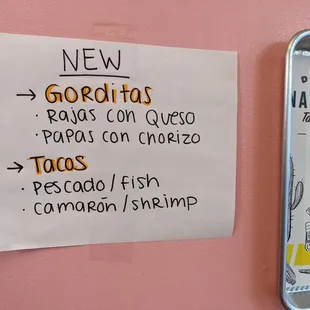 NEW
→ Gorditas
· Rajas con Queso
· Papas con chorizo
→ Tacos
· Pescado/fish
· camarón/shrimp